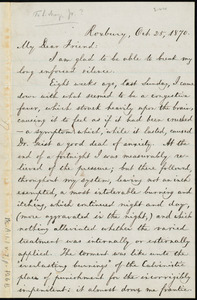 Roxbury, Oct. 25, 1870.
My Dear Friend:
I am glad to be able to break my
long enforced silence.
Eight weeks ago, last Sunday, I came
down with what seemed to be a congestive
fever, which struck heavily upon the brain,
causing it to feel as if it had been crushed
— a symptom which, while it lasted, caused
Dr. Geist a good deal of anxiety. At the
end of a fortnight I was measurably re-
lieved of the pressure; but then followed,
throughout my system, leaving not an inch
exempted, a most intolerable burning and
itching, which continued night and day,
(more aggravated in the night,) and which
nothing alleviated whether the varied
treatment was internally or externally
applied. The torment was like unto the
everlasting burnings of the Calvinistic
place of punishment for the incorrigibly
impenitent: it almost drove me frantic